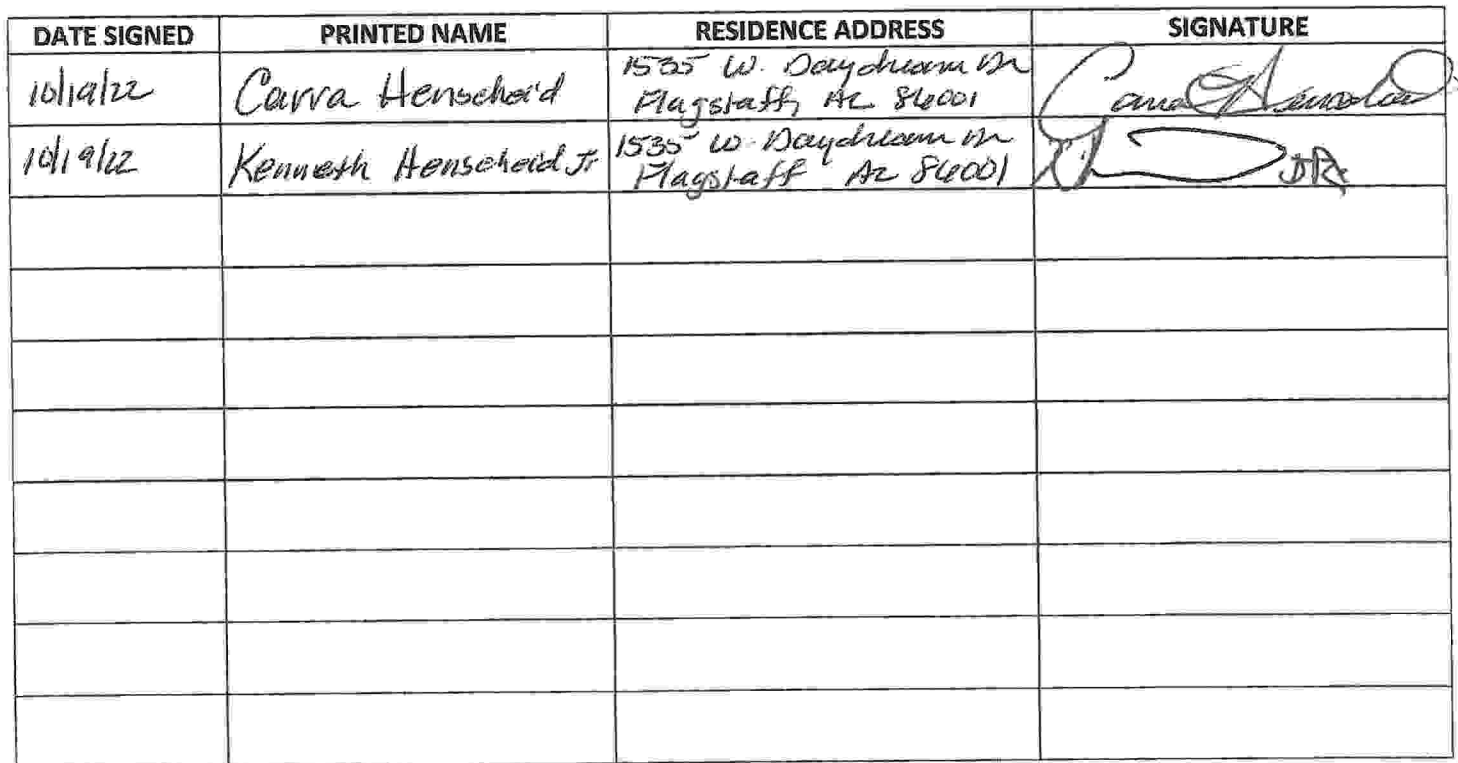 DATE SIGNED PRINTED NAME RESIDENCE ADDRESS SIGNATURE
10/19/22 Carra Henscheid 1535 W. Daydream Dr
Flagstaff, AZ 86001
10/19/22 Kenneth Henscheid Jr 1535 W. Daydream Dr
Flagstaff AZ 86001 JR